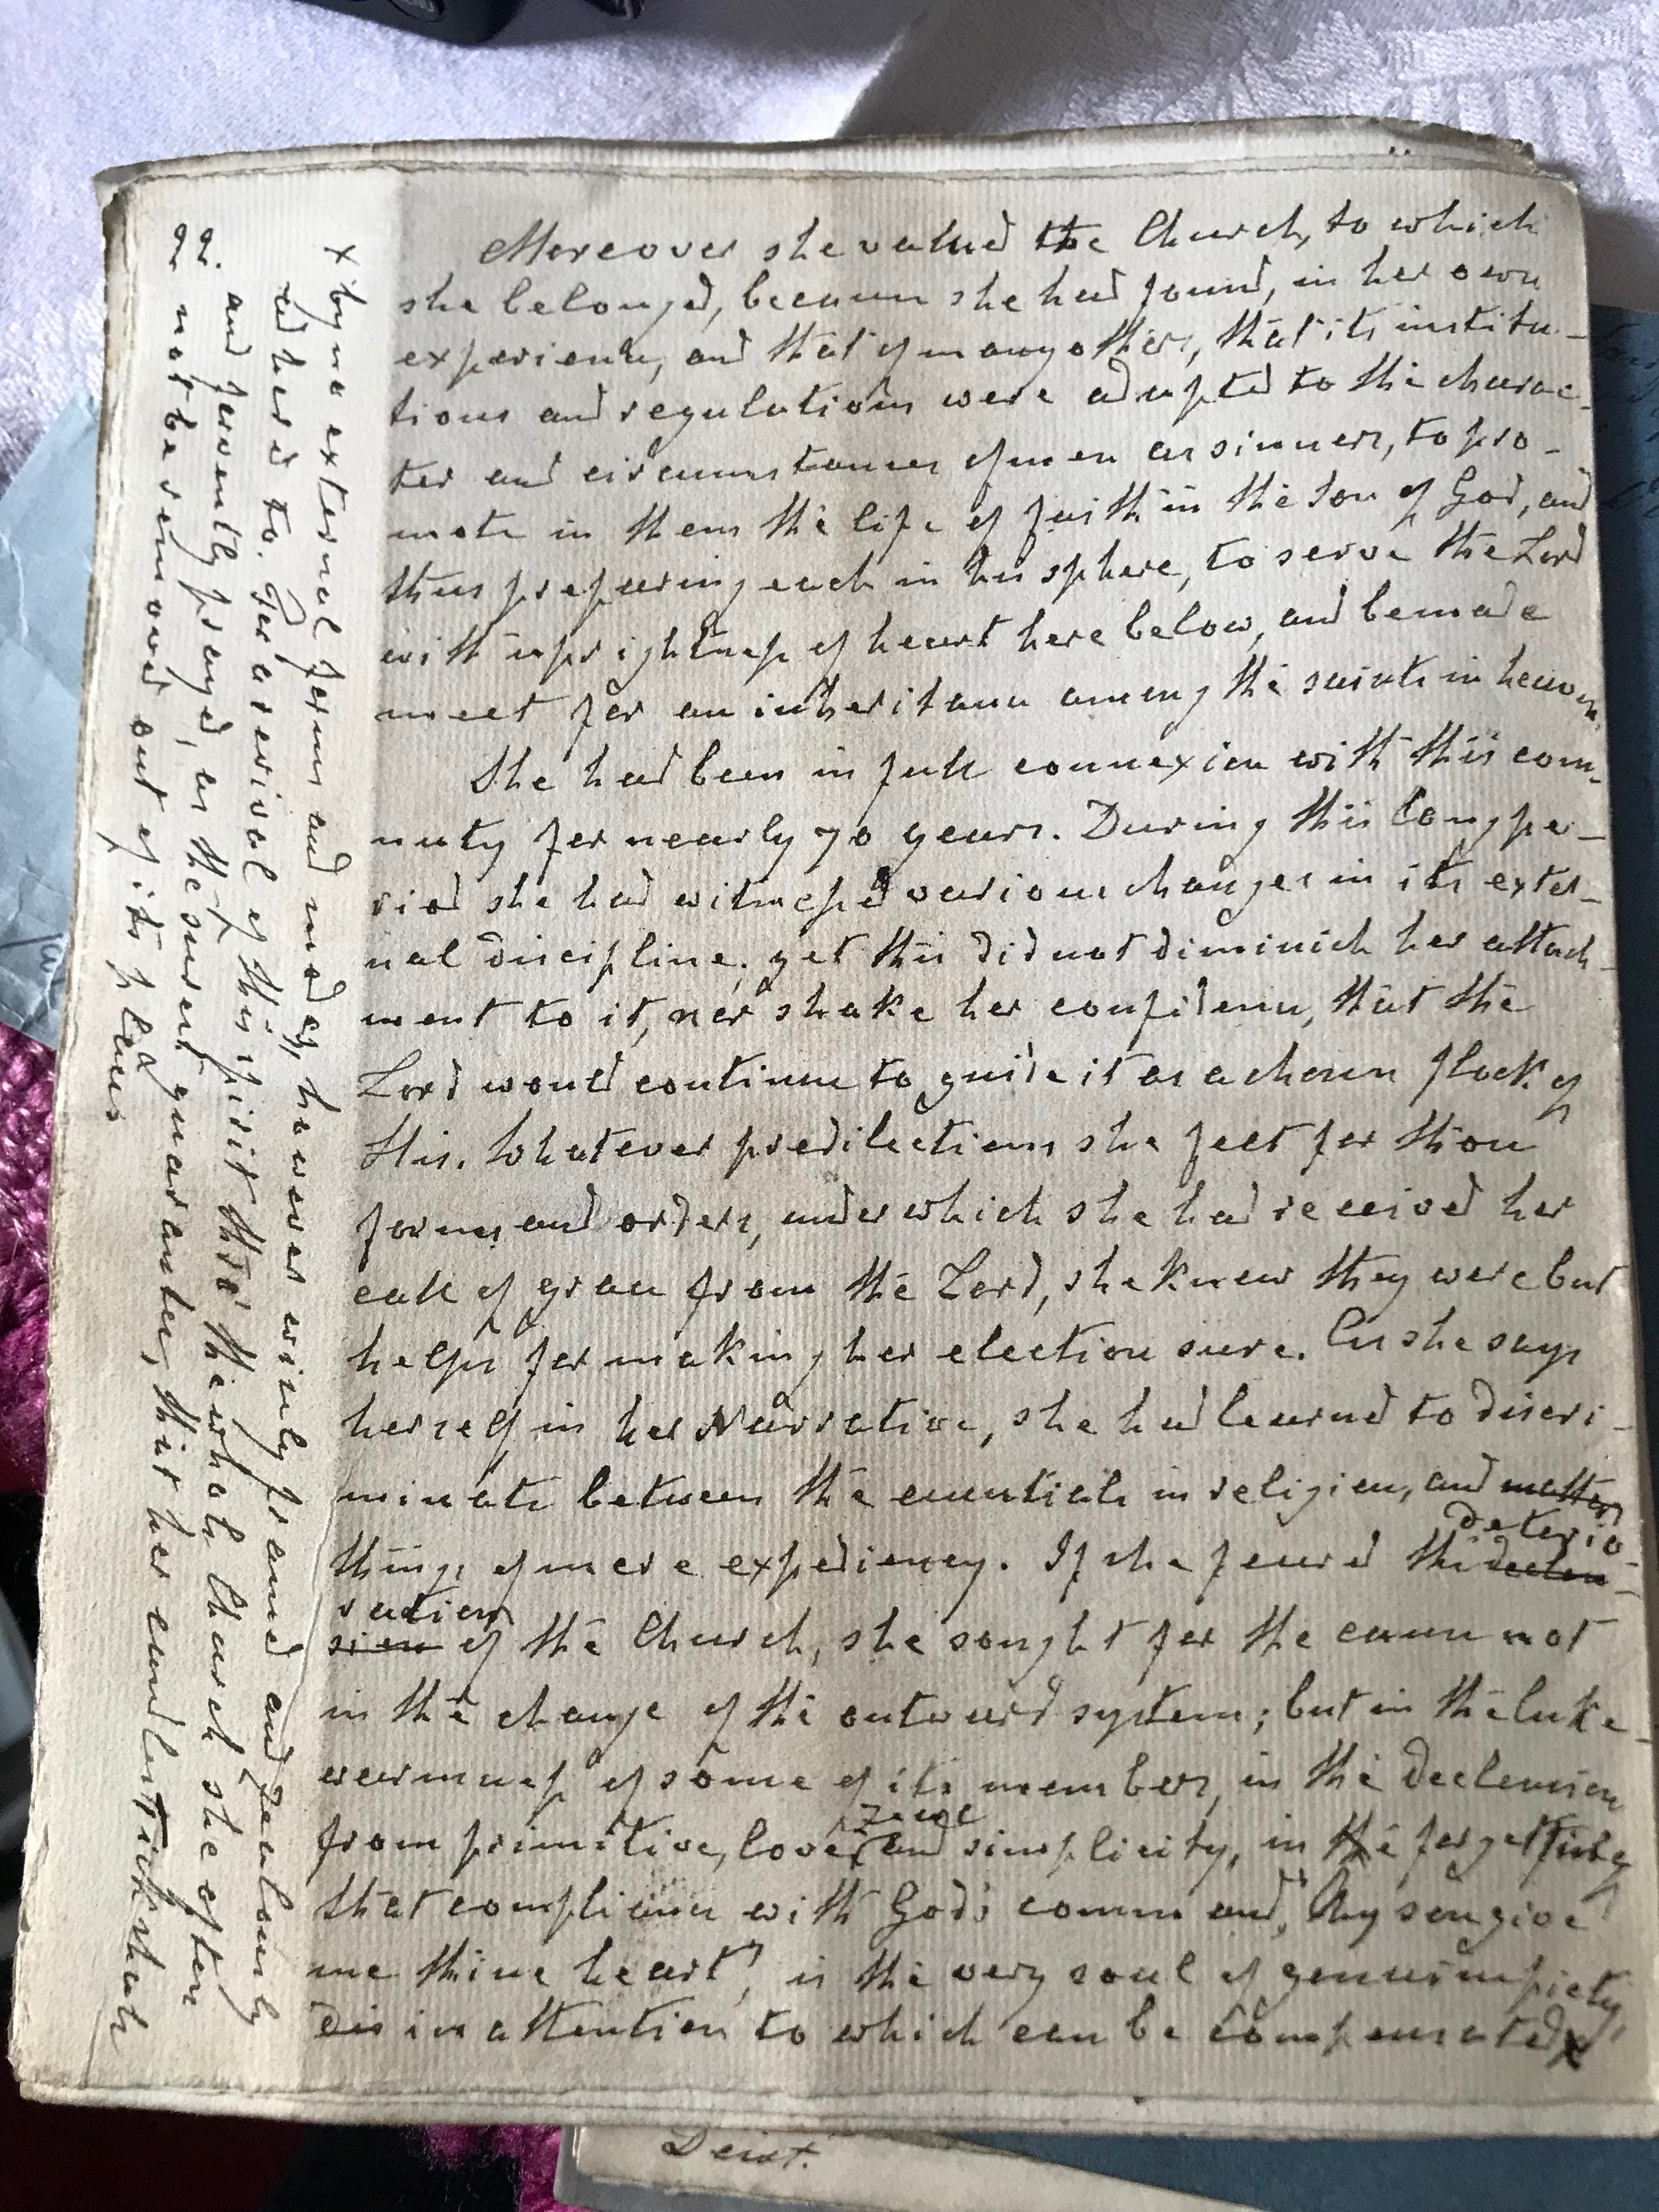 Moreover she valued the Church, to which
she belonged, because she had found, in her own
experience, and that of many others, that its institu-
tions and regulations were adapted to the charac-
ter and circumstances of men as sinners, to pro-
mote in them the life of faith in the Son of God, and
thus preparing each in his sphere, to serve the Lord
with uprightness of heart here below, and be made
meet for an inheritance among the saints in heaven.
She had been in full connexion with this com-
nuty for nearly 70 years. During this long pe-
riod she had witnessed various changes in its exter-
nal discipline; yet this did not diminish her attach-
ment to it, nor shake her confidence, that the
Lord would continue to guide it as a chosen flock of
His. Whatever predilections she feet for those
forms and orders, under which she had received her
call of grace from the Lord, she knew they were but
helps for making her election sure. As she says
herself in her Narrative, she had learned to discri-
minate between the essentials in religion, and matters
things of mere expediency. If she feared the declen-
deterio-
ration
sion of the Church, she sought for the cause not
in the change of the outward system; but in the luke-
warmness of some of its members, in the declension
from primitive, love, and simplicity, in the forgetting
zeal
that compliance with God's command, "My son give
me thine heart", is the very soul of genuine piety,
dis inattention to which can be compensated x
x by no external forms and modes, however wisely framed and zealously
adhered to. For a revival of this spirit thro' the whole Church she often
and fervently prayed, as the surest guarantee, that her candlestick shall
not be removed out of its place
92.